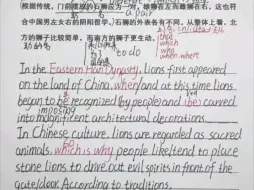 根据传统，门前摆放的石狮应为一对，雄狮在左雌狮在右，这也符
合中国男左女右的阴阳哲学。石狮的外表各有不同，从整体上看，北
方的狮子比较简单，而南方的狮子更生动。
a pair
to do
that
which
who
when.where
In the Eastern Han Dynasty, lions first appeared
on the land of China, when and at this time lions
began to be recognized by people and (be) carved
into magnificent architectural decorations.
In Chinese culture, lions are regarded as sacred
animals, which is why people like/tend to place
stone lions to drive out evil spirits in front of the
gate/door. According to traditions,